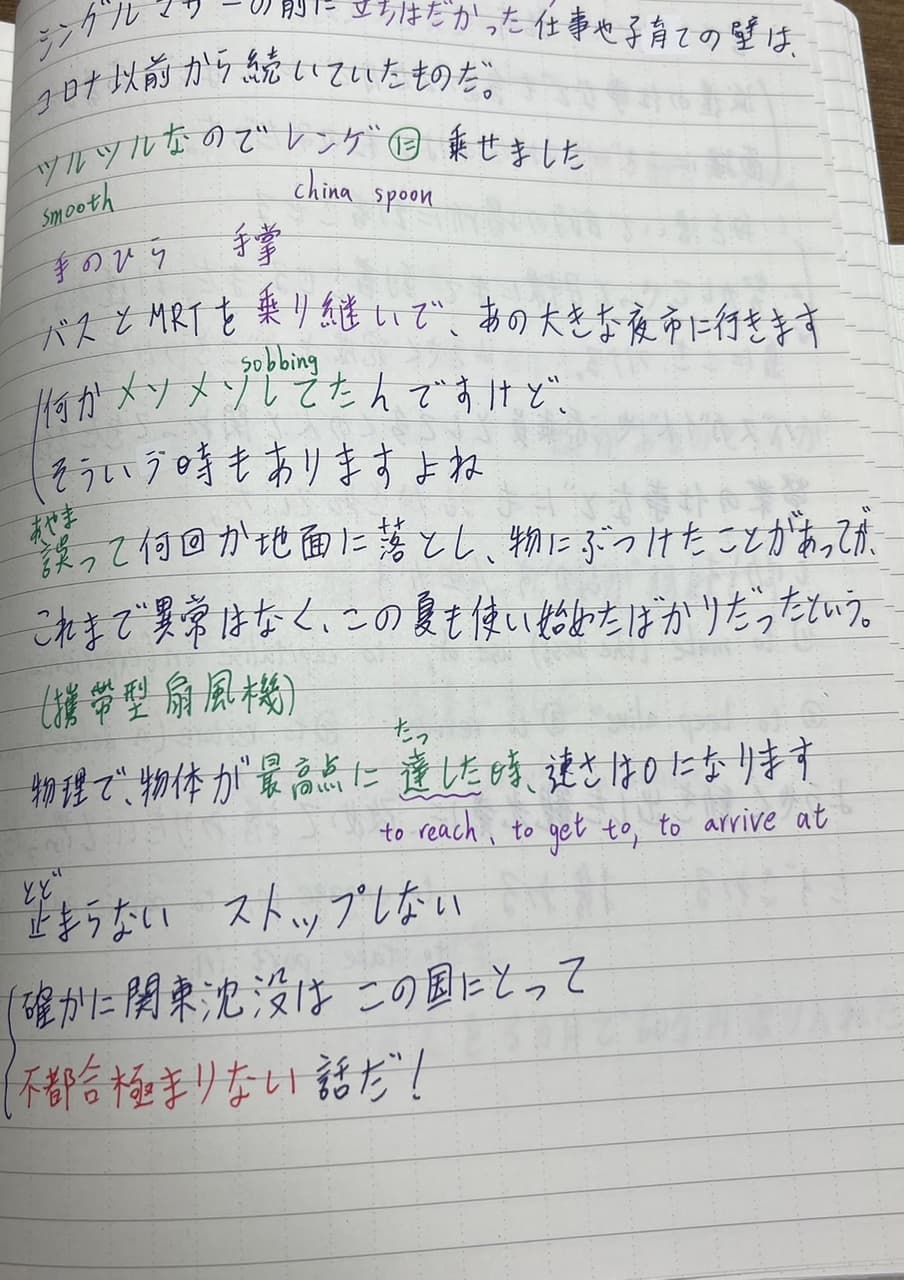 シングルマザーの前に立ちはだかった仕事や子育ての壁は、
コロナ以前から続いていたものだ。
ツルツルなのでレンゲに乗せました
smooth china spoon
手のひら 手掌
バスとMRTを乗り継いで、あの大きな夜市に行きます
sobbing
何かメソメソしてたんですけど、
そういう時もありますよね
あやま
誤って何回か地面に落とし、物にぶつけたことがあってが、
これまで異常はなく、この夏も使い始めたばかりだったという。
(携帯型扇風機)
たっ
物理で、物体が最高点に達した時、速さは0になります
to reach, to get to, to arrive at
とど
止まらない ストップしない
確かに関東沈没はこの国にとって
不都合極まりない話だ!